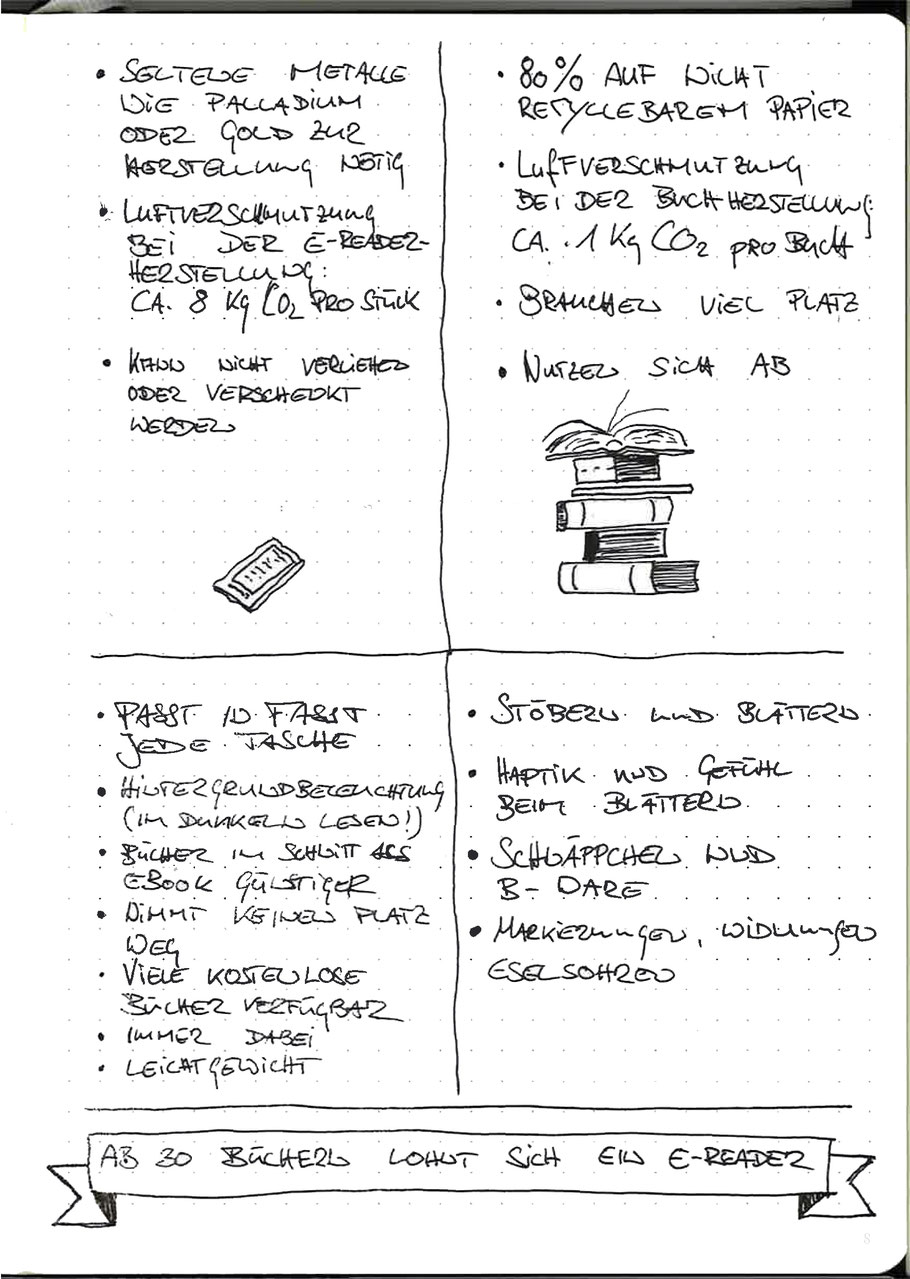 • SELTENE METALLE
WIE PALLADIUM
ODER GOLD ZUR
HERSTELLUNG NÖTIG
• LUFTVERSCHMUTZUNG
BEI DER E-READER-
HERSTELLUNG:
CA. 8 Kg CO₂ PRO STÜCK
• KANN NICHT VERLIEHEN
ODER VERSCHENKT
WERDEN
• 80% AUF NICHT
RECYCLEBAREM PAPIER
• LUFTVERSCHMUTZUNG
BEI DER BUCHHERSTELLUNG:
CA. 1 Kg CO₂ PRO BUCH
• BRAUCHEN VIEL PLATZ
• NUTZEN SICH AB
• PASST IN FASST
JEDE TASCHE
• HINTERGRUNDBELEUCHTUNG
(IM DUNKELN LESEN!)
• BÜCHER IM SCHNITT ALS
EBOOK GÜNSTIGER
• NIMMT KEINEN PLATZ
WEG
• VIELE KOSTENLOSE
BÜCHER VERFÜGBAR
• IMMER DABEI
• LEICHTGEWICHT
• STÖBERN UND BLÄTTERN
• HAPTIK UND GEFÜHL
BEIM BLÄTTERN
• SCHNÄPPCHEN UND
B-WARE
• MARKIERUNGEN, WIDMUNGEN
ESELSOHREN
AB 30 BÜCHERN LOHNT SICH EIN E-READER
8